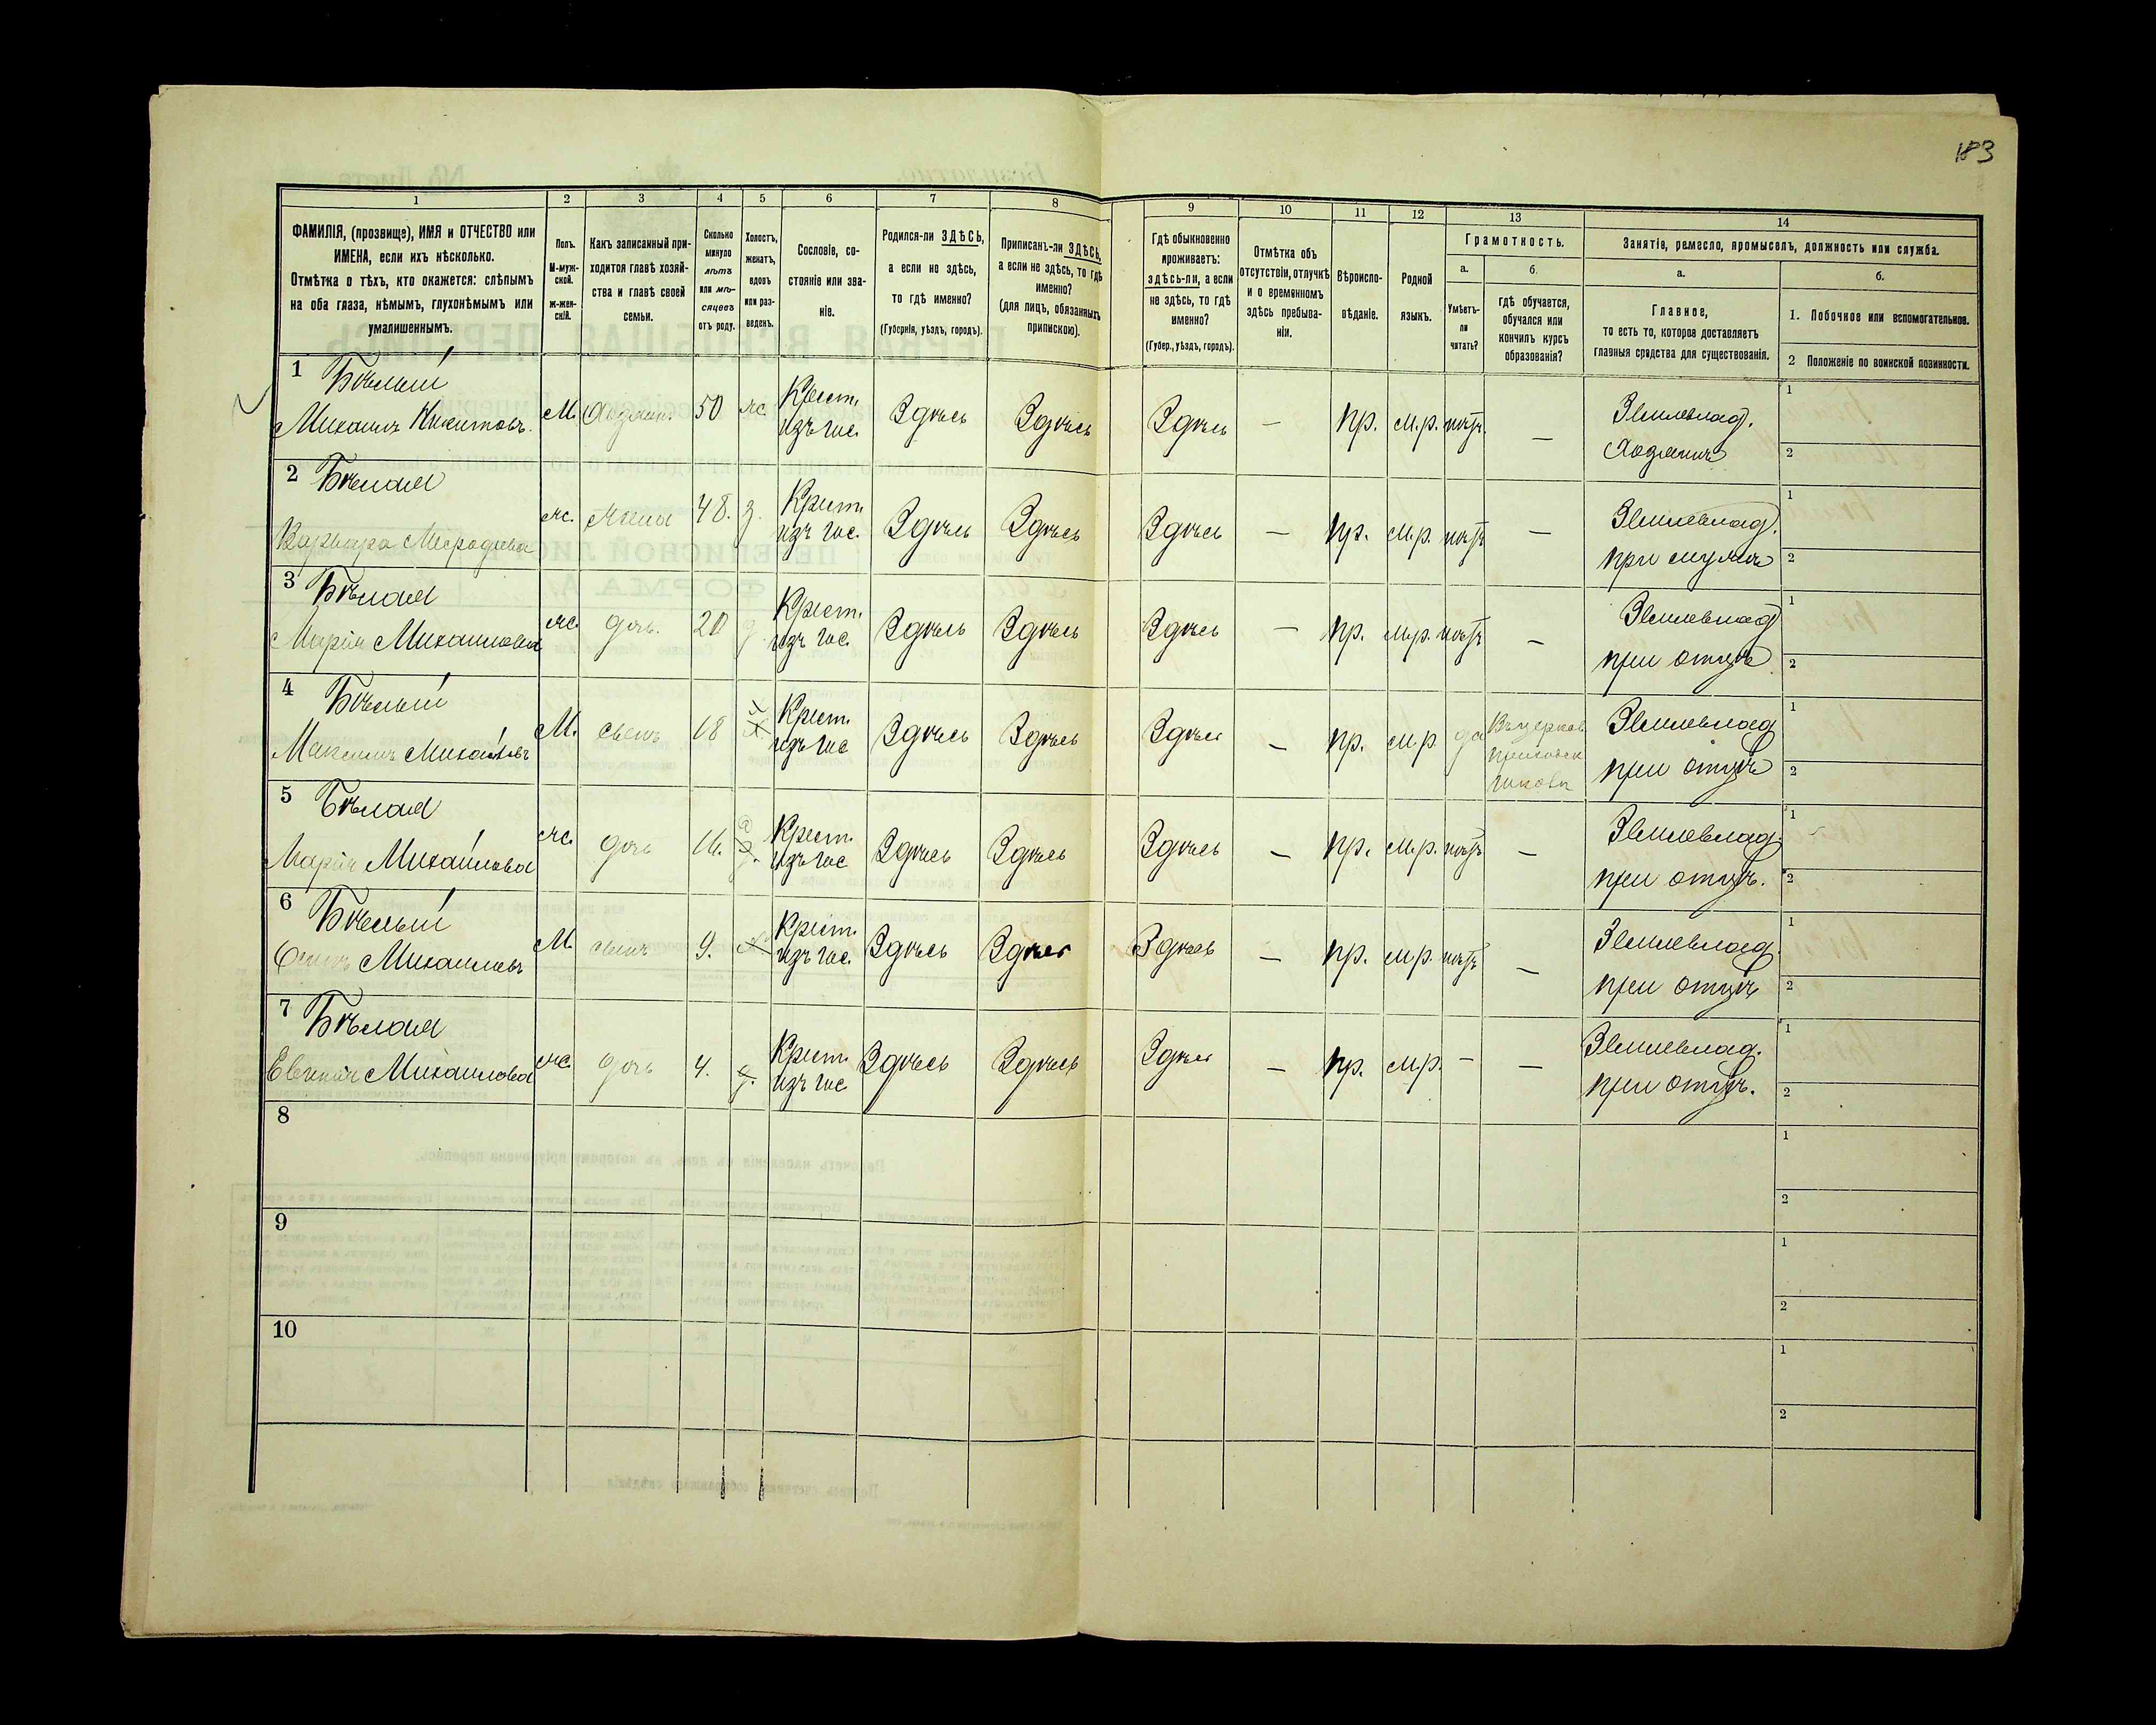 183
1 2 3 4 5 6 7 8 9 10 11 12 13 14
ФАМИЛІЯ, (прозвище), ИМЯ и ОТЧЕСТВО или
ИМЕНА, если ихъ нѣсколько.
Отмѣтка о тѣхъ, кто окажется: слѣпымъ
на оба глаза, нѣмымъ, глухонѣмымъ или
умалишеннымъ.
Полъ.
М-муж-
ской.
ж-жен-
скій.
Какъ записанный при-
ходится главѣ хозяй-
ства и главѣ своей
семьи.
Сколько
минуло
лѣтъ
или мѣ-
сяцевъ
отъ роду.
Холостъ,
женатъ,
вдовъ
или раз-
веденъ.
Сословіе, со-
стояніе или зва-
ніе.
Родился-ли ЗДѢСЬ,
а если не здѣсь,
то гдѣ именно?
(Губернія, уѣздъ, городъ).
Приписанъ-ли ЗДѢСЬ,
а если не здѣсь, то гдѣ
именно?
(для лицъ, обязанныхъ
припискою).
Гдѣ обыкновенно
проживаетъ:
здѣсь-ли, а если
не здѣсь, то гдѣ
именно?
(Губер., уѣздъ, городъ).
Отмѣтка объ
отсутствіи, отлучкѣ
и о временномъ
здѣсь пребыва-
ніи.
Вѣроиспо-
вѣданіе.
Родной
языкъ.
Грамотность.
а.
Умѣетъ-
ли
читать?
б.
гдѣ обучается,
обучался или
кончилъ курсъ
образованія?
Занятіе, ремесло, промыселъ, должность или служба.
а.
Главное,
то есть то, которое доставляетъ
главныя средства для существованія.
б.
1. Побочное или вспомогательное.
2 Положеніе по воинской повинности.
1 Бѣлый
Михаилъ Никитовъ. М. Хозяинъ 50 ж. Крест. Здѣсь Здѣсь Здѣсь — пр. м.р. нѣтъ — Землевлад. 1
изъ гос. Хозяинъ 2
2 Бѣлая
Варвара ж. жена 48. з. Крест. Здѣсь Здѣсь Здѣсь — пр. м.р. нѣтъ — Землевлад. 1
изъ гос. при мужѣ 2
3 Бѣлая
Марія Михаилова ж. дочь. 20 д. Крест. Здѣсь Здѣсь Здѣсь — пр. м.р. нѣтъ — Землевлад 1
изъ гос. при отцѣ 2
4 Бѣлый
Максимъ Михаиловъ М. сынъ 18 Крест. Здѣсь Здѣсь Здѣсь — пр. м.р да Въ церков. Землевлад 1
изъ гос приходск при отцѣ 2
школѣ
5 Бѣлая
Марія Михаилова ж. дочь 16. д. Крест. Здѣсь Здѣсь Здѣсь — пр. м.р. нѣтъ — Землевлад. 1
изъ гос при отцѣ. 2
6 Бѣлый
Осипъ Михаиловъ М. сынъ 9. х Крест. Здѣсь Здѣсь Здѣсь — пр. м.р. нѣтъ — Землевлад. 1
изъ гос. при отцѣ 2
7 Бѣлая
Евгенія Михаилова ж. дочь 4. д. Крест. Здѣсь Здѣсь Здѣсь — пр. м.р. — — Землевлад. 1
изъ гос при отцѣ. 2
8 1
2
9 1
2
10 1
2